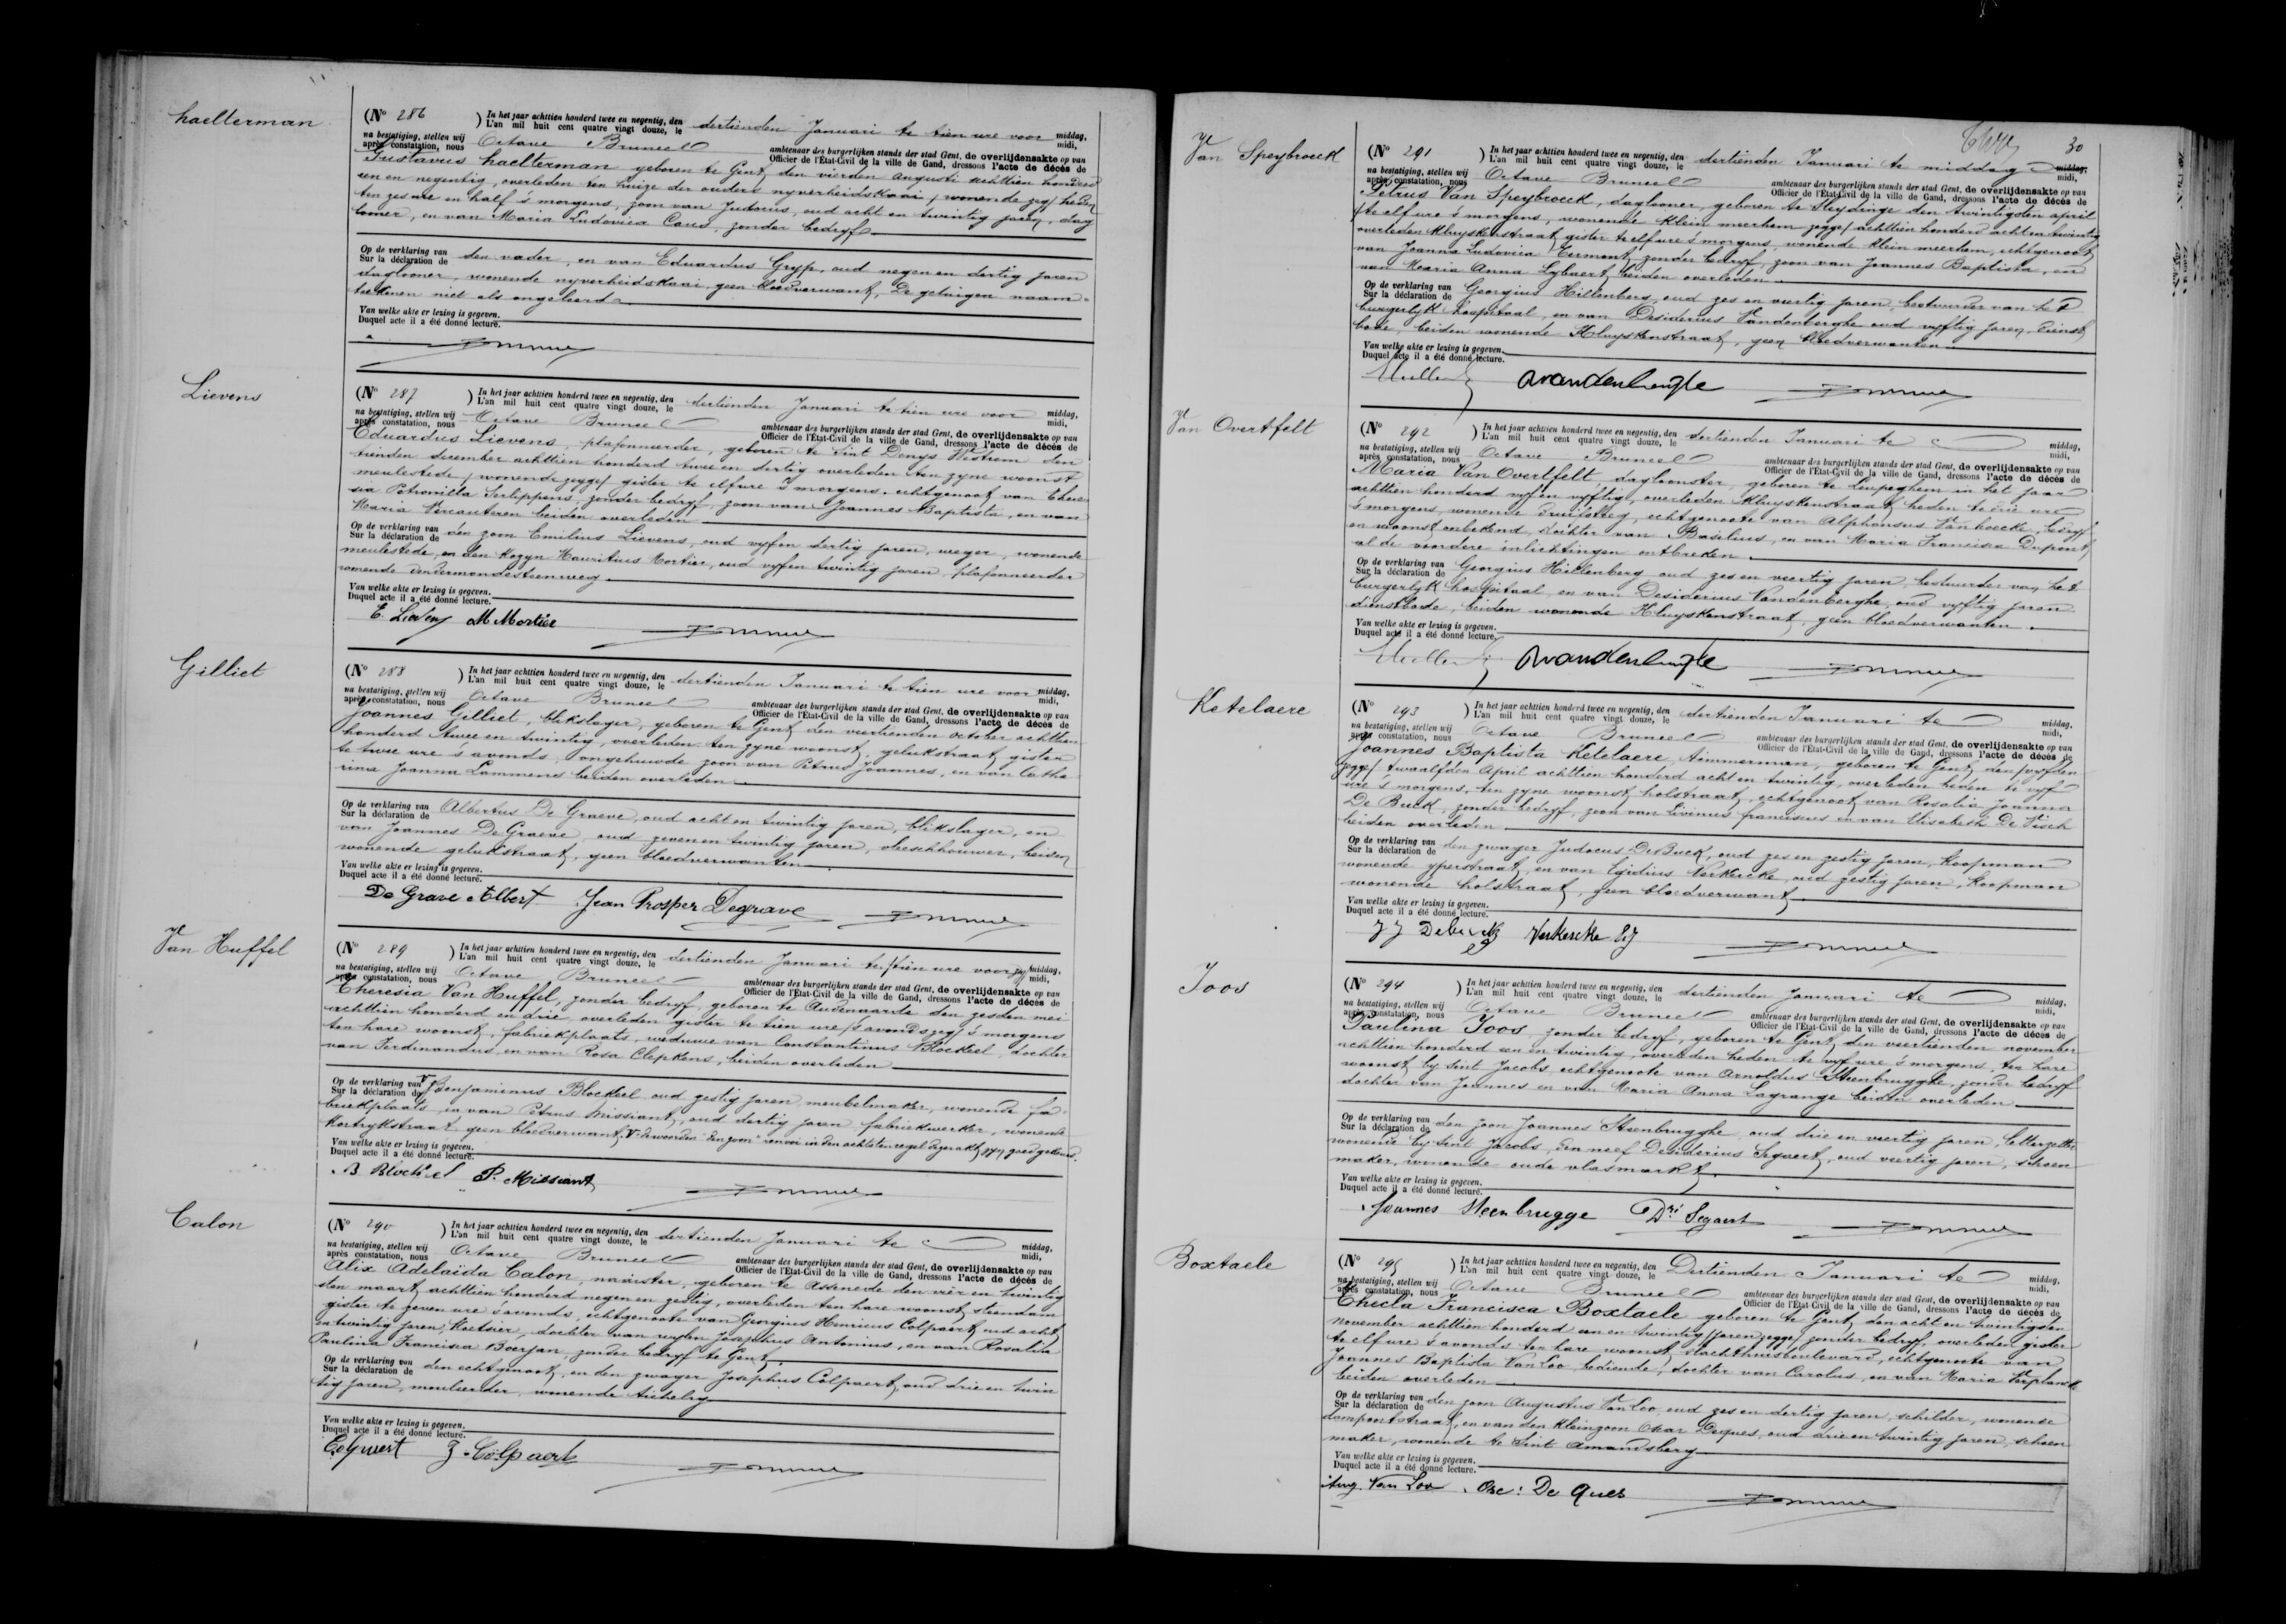 haelterman
(No 286 ) In het jaar achttien honderd twee en negentig, den dertienden Januari te tien ure voor middag,
L'an mil huit cent quatre vingt douze, le midi,
na bestatiging, stellen wij Octave Bruneel ambtenaar des burgerlijken stands der stad Gent, de overlijdensakte op van
après constatation, nous Officier de l'État-Civil de la ville de Gand, dressons l'acte de décès de
Gustavus haelterman geboren te Gent, den vierden Augusti achttien honderd
een en negentig, overleden ten huize der ouders nyverheidskaai / wonende zeg/ heden
ten zes ure en half 's morgens, zoon van Judocus, oud acht en twintig jaren, dag
looner, en van Maria Ludovica Caus, zonder bedryf
Op de verklaring van den vader, en van Eduardus Gryp, oud negen en dertig jaren
Sur la déclaration de
daglooner, wonende nyverheidskaai, geen bloedverwant, De getuigen naam=
teekenen niet als ongeleerd
Van welke akte er lezing is gegeven.
Duquel acte il a été donné lecture.
Lievens
(No 287 ) In het jaar achttien honderd twee en negentig, den dertienden Januari te tien ure voor middag,
L'an mil huit cent quatre vingt douze, le midi,
na bestatiging, stellen wij Octave Bruneel ambtenaar des burgerlijken stands der stad Gent, de overlijdensakte op van
après constatation, nous Officier de l'État-Civil de la ville de Gand, dressons l'acte de décès de
Eduardus Lievens, plafonneerder, geboren te Sint Denys Westrem den
tienden december achttien honderd twee en dertig overleden ten zyne woonst
meulestede / wonende zegge/ gister te elf ure 's morgens, echtgenoot van
Petronilla Serlippens, zonder bedryf, zoon van Joannes Baptista, en van
Maria Vercauteren beiden overleden
Op de verklaring van den zoon Emilius Lievens, oud vyf en dertig jaren, weger, wonende
Sur la déclaration de
meulestede, en den Kozyn Mauritius Mortier, oud vyf en twintig jaren, plafonneerder
wonende dendermondesteenweg
Van welke akte er lezing is gegeven.
Duquel acte il a été donné lecture.
E. Lievens M Mortier
Gilliet
(No 288 ) In het jaar achttien honderd twee en negentig, den dertienden Januari te tien ure voor middag,
L'an mil huit cent quatre vingt douze, le midi,
na bestatiging, stellen wij Octave Bruneel ambtenaar des burgerlijken stands der stad Gent, de overlijdensakte op van
après constatation, nous Officier de l'État-Civil de la ville de Gand, dressons l'acte de décès de
Joannes Gilliet, blikslager, geboren te Gent, den veertienden october achttien
honderd twee en twintig, overleden ten zyne woonst, gelukstraat, gister
te twee ure 's avonds, ongehuwde zoon van Petrus Joannes, en van Catha=
rina Joanna Lammens beiden overleden
Op de verklaring van Albertus De Graeve, oud acht en twintig jaren, blikslager, en
Sur la déclaration de
van Joannes De Graeve, oud zeven en twintig jaren, vleeschhouwer, beiden
wonende gelukstraat, geen bloedverwanten
Van welke akte er lezing is gegeven.
Duquel acte il a été donné lecture.
De Grave Albert Jean Prosper Degrave
Van Huffel
(No 289 ) In het jaar achttien honderd twee en negentig, den dertienden Januari te/ tien ure voor zeg/ middag,
L'an mil huit cent quatre vingt douze, le midi,
na bestatiging, stellen wij Octave Bruneel ambtenaar des burgerlijken stands der stad Gent, de overlijdensakte op van
après constatation, nous Officier de l'État-Civil de la ville de Gand, dressons l'acte de décès de
Theresia Van Huffel, zonder bedryf, geboren te Audenaarde den zesden mei
achttien honderd en drie, overleden gister te tien ure /'s avonds zeg/ 's morgens
ten hare woonst, fabriekplaats, weduwe van Constantinus Blockeel, dochter
van Ferdinandus, en van Rosa Clepkens, beiden overleden
Op de verklaring van V Benjaminus Blockeel oud zestig jaren, meubelmaker, wonende fa=
Sur la déclaration de
briekplaats, en van Petrus Missiant, oud dertig jaren fabriekwerker, wonende
Kortrykstraat geen bloedverwant, V de woorden "den zoon" renvoi in den achtsten regel dezer akt zyn goedgekeurd.
Van welke akte er lezing is gegeven.
Duquel acte il a été donné lecture.
B. Blockeel P. Missiant
Calon
(No 290 ) In het jaar achttien honderd twee en negentig, den dertienden Januari te middag,
L'an mil huit cent quatre vingt douze, le midi,
na bestatiging, stellen wij Octave Bruneel ambtenaar des burgerlijken stands der stad Gent, de overlijdensakte op van
après constatation, nous Officier de l'État-Civil de la ville de Gand, dressons l'acte de décès de
Alix Adelaida Calon, naaister, geboren te Assenede den vier en twintig
sten maart achttien honderd negen en zestig, overleden ten hare woonst steendam
gister te zeven ure 's avonds, echtgenoote van Georgius Henricus Colpaert, oud acht
en twintig jaren, Koetsier, dochter van wylen Josephus Antonius, en van Rosalia
Paulina Francisca Beerjan, zonder bedryf te Gent.
Op de verklaring van den echtgenoot, en den zwager Josephus Colpaert, oud drie en twin
Sur la déclaration de
tig jaren, meulender, wonende tichelry
Van welke akte er lezing is gegeven.
Duquel acte il a été donné lecture.
Colpaert J. Colpaert
30
Van Speybroeck
(No 291 ) In het jaar achttien honderd twee en negentig, den dertienden Januari te middag middag,
L'an mil huit cent quatre vingt douze, le midi,
na bestatiging, stellen wij Octave Bruneel ambtenaar des burgerlijken stands der stad Gent, de overlijdensakte op van
après constatation, nous Officier de l'État-Civil de la ville de Gand, dressons l'acte de décès de
Petrus Van Speybroeck, daglooner, geboren te Sleydinge den twintigsten april
/te elf ure 's morgens, wonende Klein meerhem zegge/ achttien honderd acht en twintig
overleden Kluyskenstraat, gister te elf ure 's morgens, wonende Klein meerhem, echtgenoot
van Joanna Ludovica Termont, zonder bedryf, zoon van Joannes Baptista, en
van Maria Anna Lybaert, beiden overleden
Op de verklaring van Georgius Hillenberg, oud zes en veertig jaren, bestuurder van het
Sur la déclaration de
burgerlyk hospitaal, en van Desiderius Vandenberghe oud vyftig jaren dienst
bode, beiden wonende Kluyskenstraat, geen bloedverwanten
Van welke akte er lezing is gegeven.
Duquel acte il a été donné lecture.
Dvandenberghe
Van Overtfelt
(No 292 ) In het jaar achttien honderd twee en negentig, den dertienden Januari te middag,
L'an mil huit cent quatre vingt douze, le midi,
na bestatiging, stellen wij Octave Bruneel ambtenaar des burgerlijken stands der stad Gent, de overlijdensakte op van
après constatation, nous Officier de l'État-Civil de la ville de Gand, dressons l'acte de décès de
Maria Van Overtfelt, dagloonster, geboren te Leupeghem in het jaar
achttien honderd vyf en vyftig, overleden Kluyskenstraat, heden te drie ure
's morgens, wonende Druilsteeg, echtgenoote van Alphonsus Vanhoecke, bedryf
en woonst onbekend, dochter van Baselius, en van Maria Francisca Dupont
al de voordere inlichtingen ontbreken
Op de verklaring van Georgius Hillenberg oud zes en veertig jaren, bestuurder van het
Sur la déclaration de
burgerlyk hospitaal, en van Desiderius Vandenberghe oud vyftig jaren
dienstbode, beiden wonende Kluyskenstraat, geen bloedverwanten
Van welke akte er lezing is gegeven.
Duquel acte il a été donné lecture.
Dvandenberghe
Ketelaere
(No 293 ) In het jaar achttien honderd twee en negentig, den dertienden Januari te middag,
L'an mil huit cent quatre vingt douze, le midi,
na bestatiging, stellen wij Octave Bruneel ambtenaar des burgerlijken stands der stad Gent, de overlijdensakte op van
après constatation, nous Officier de l'État-Civil de la ville de Gand, dressons l'acte de décès de
Joannes Baptista Ketelaere, timmerman, geboren te Gent, den /vyfden
zegge/ twaalfden April achttien honderd acht en twintig, overleden heden te vyf
ure 's morgens, ten zyne woonst, holstraat, echtgenoot van Rosalia Joanna
De Buck, zonder bedryf, zoon van Livinus franciscus en van Elisabeth De Visch
beiden overleden
Op de verklaring van den zwager Judocus De Buck, oud zes en zestig jaren, Koopman
Sur la déclaration de
wonende yperstraat, en van Egidius Verkercke, oud zestig jaren, Koopman
wonende holstraat, geen bloedverwant
Van welke akte er lezing is gegeven.
Duquel acte il a été donné lecture.
J J Debuck Verkercke Eg
Joos
(No 294 ) In het jaar achttien honderd twee en negentig, den dertienden Januari te middag,
L'an mil huit cent quatre vingt douze, le midi,
na bestatiging, stellen wij Octave Bruneel ambtenaar des burgerlijken stands der stad Gent, de overlijdensakte op van
après constatation, nous Officier de l'État-Civil de la ville de Gand, dressons l'acte de décès de
Paulina Joos, zonder bedryf, geboren te Gent, den veertienden november
achttien honderd een en twintig, overleden heden te vyf ure 's morgens, ten hare
woonst by Sint Jacobs, echtgenoote van Arnoldus Steenbrugghe, zonder bedryf
dochter van Joannes en van Maria Anna Lagrange beiden overleden
Op de verklaring van den zoon Joannes Steenbrugghe, oud drie en veertig jaren, letterzetter
Sur la déclaration de
wonende by Sint Jacobs, den neef Desiderius Segaert, oud veertig jaren, schoen
maker, wonende oude vlasmarkt
Van welke akte er lezing is gegeven.
Duquel acte il a été donné lecture.
Joannes Steenbrugge Dri Segaert
Boxtaele
(No 295 ) In het jaar achttien honderd twee en negentig, den Dertienden Januari te middag,
L'an mil huit cent quatre vingt douze, le midi,
na bestatiging, stellen wij Octave Bruneel ambtenaar des burgerlijken stands der stad Gent, de overlijdensakte op van
après constatation, nous Officier de l'État-Civil de la ville de Gand, dressons l'acte de décès de
Thecla Francisca Boxtaele geboren te Gent, den acht en twintigsten
november achttien honderd een en twintig /jaren zegge/ zonder bedryf, overleden gister
te elf ure 's avonds ten hare woonst, slachthuisboulevard, echtgenoote van
Joannes Baptista Van Loo bediende, dochter van Carolus, en van Maria Verplancke
beiden overleden
Op de verklaring van den zoon Augustus Van Loo, oud zes en dertig jaren, schilder, wonende
Sur la déclaration de
dampoortstraat, en van den Kleinzoon Oscar Deques, oud drie en twintig jaren, schoen
maker, wonende te Sint Amandsberg
Van welke akte er lezing is gegeven.
Duquel acte il a été donné lecture.
Aug. Van Loo Osc: De Ques